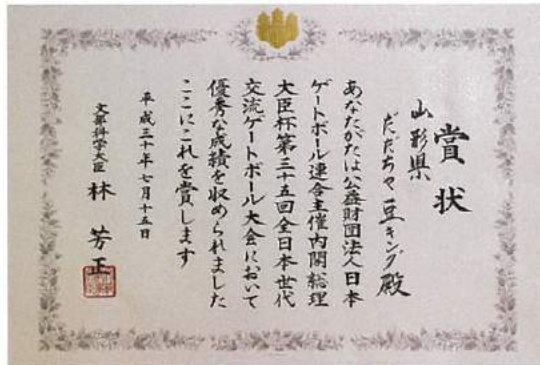 賞状
山形県
だだちゃ豆キング殿
あなたがたは公益財団法人日本
ゲートボール連合主催内閣総理
大臣杯第三十五回全日本世代
交流ゲートボール大会において
優秀な成績を収められました
ここにこれを賞します
平成三十年七月十五日
文部科学大臣 林 芳正